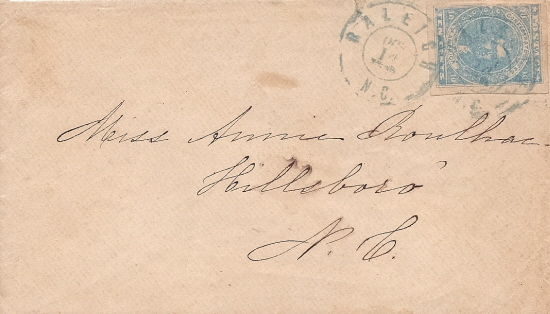 RALEIGH
DEC
14
N.C.
N.C.
Miss Annie Roulhac
Hillsboro'
N. C.